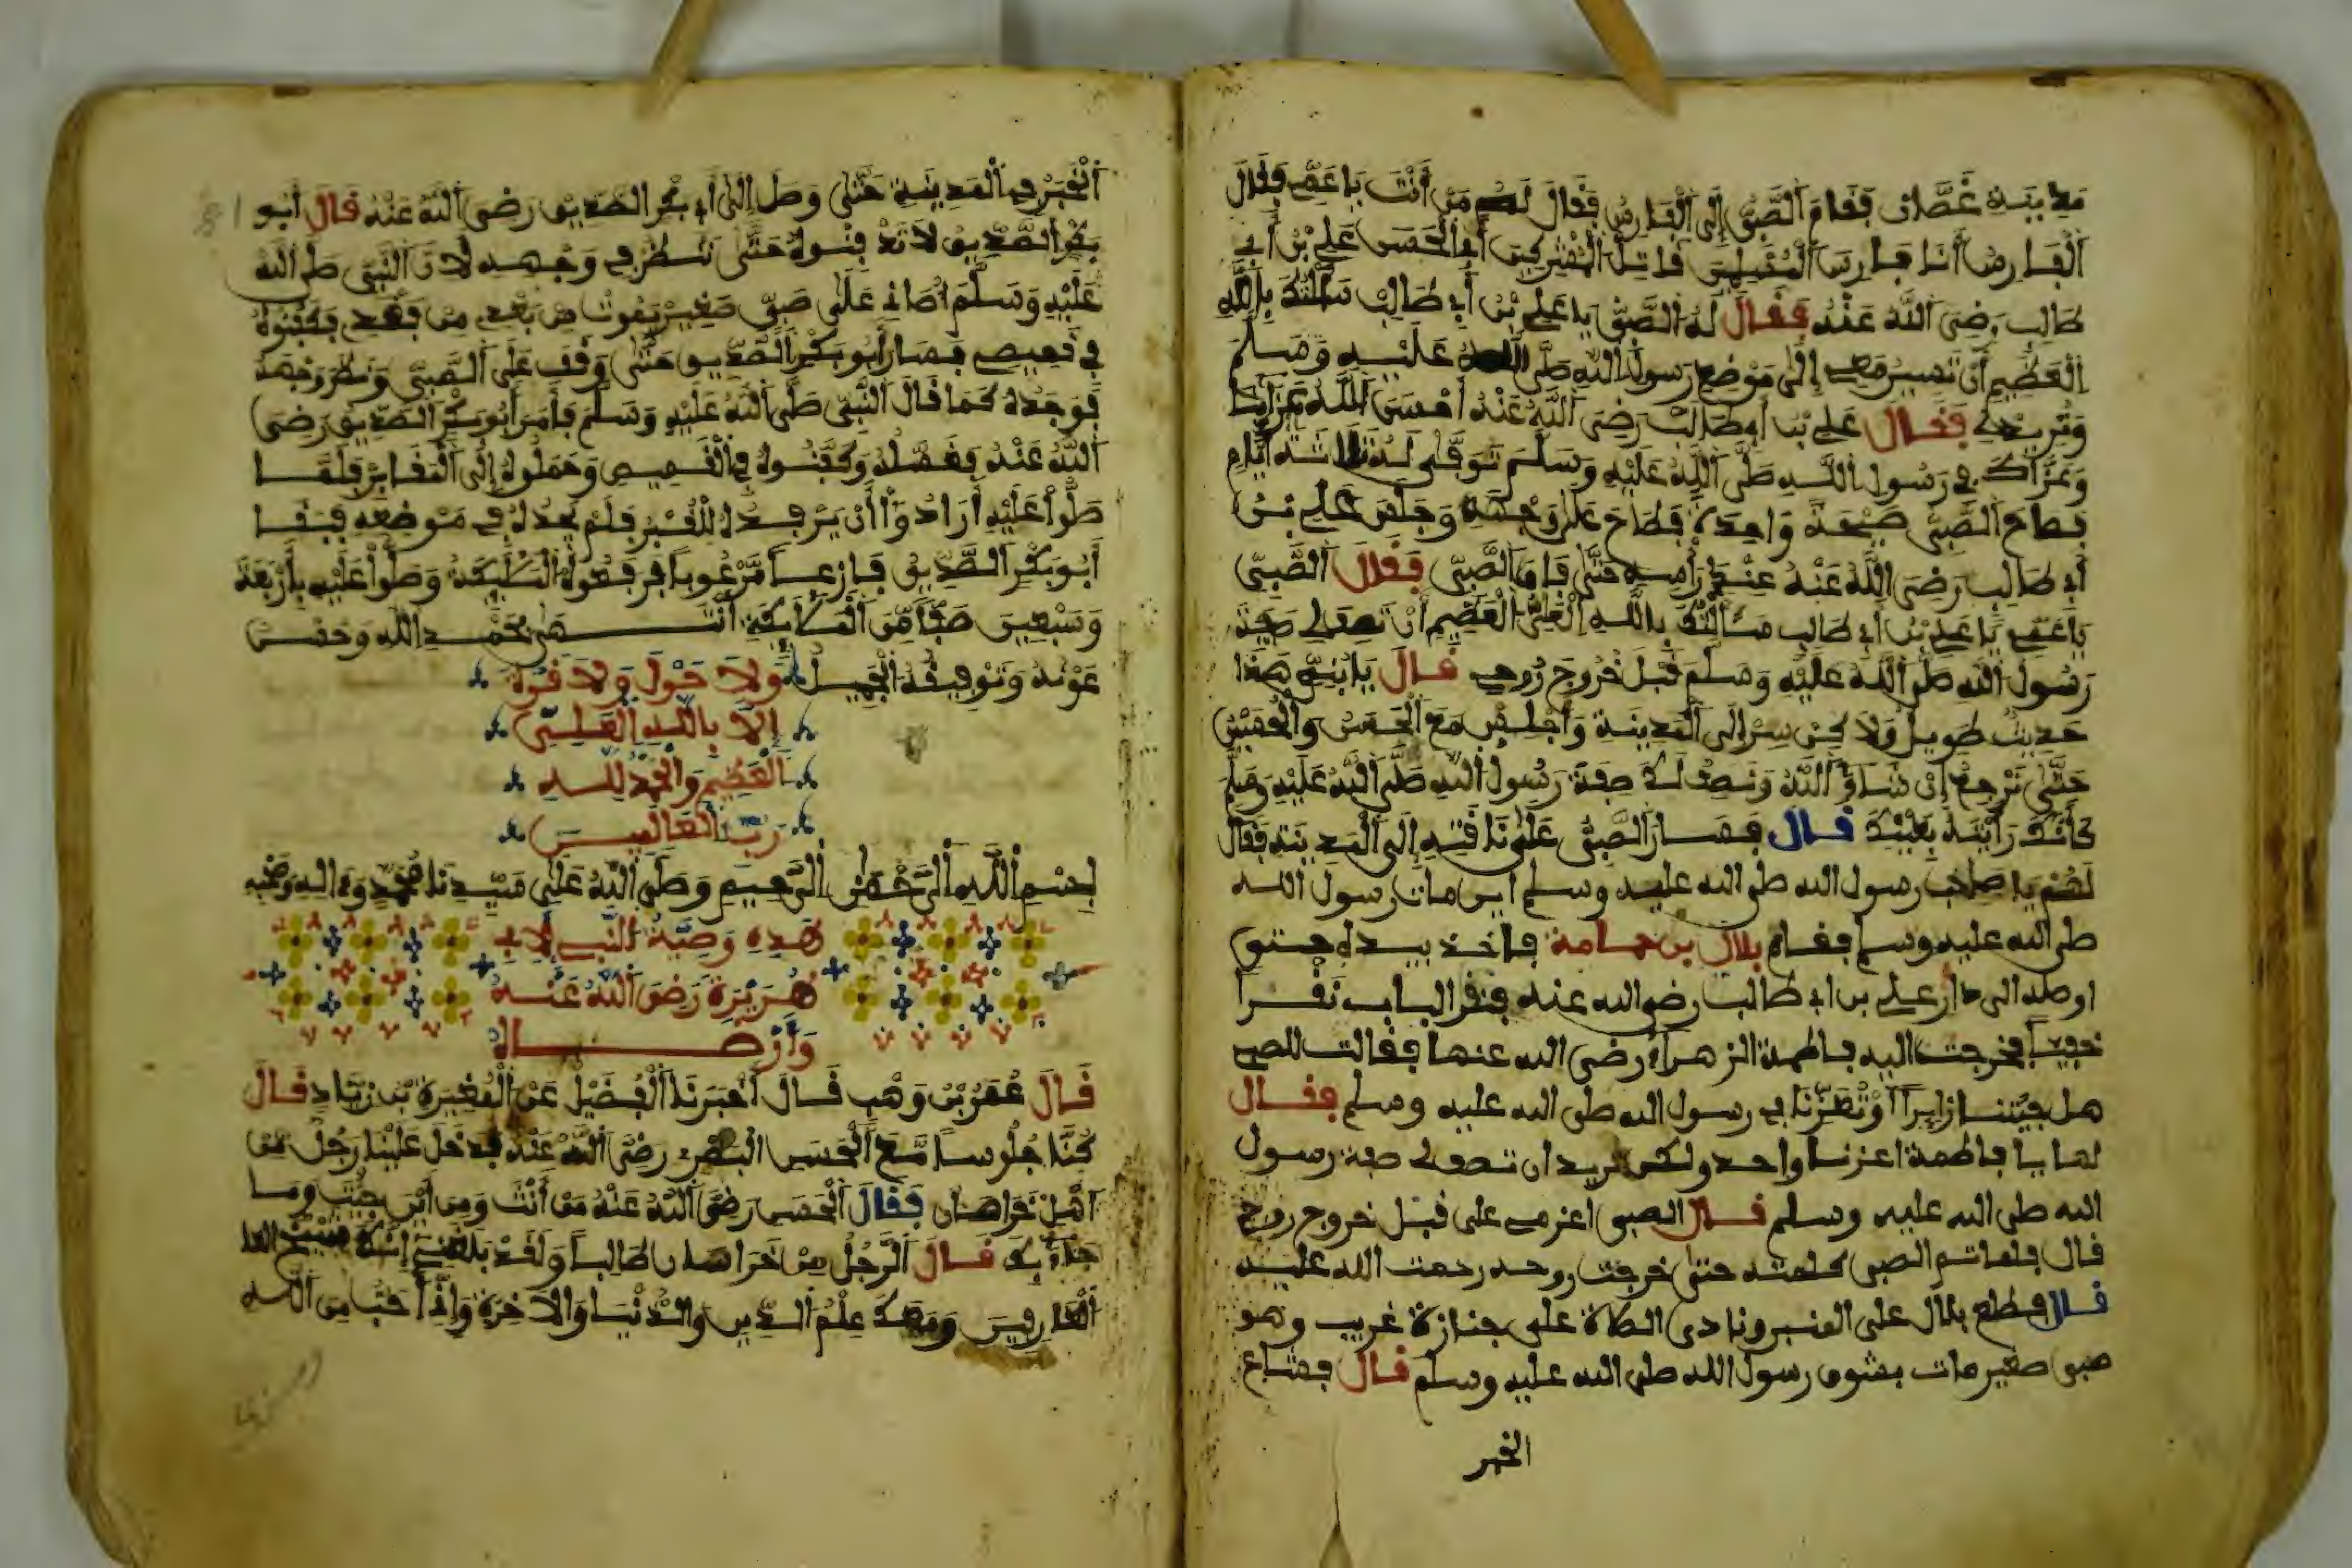 مدينة غضان فقام الصبي إلى الفارس فقال لهم من أنت يا عم فقال
الفارس أنا فارس المسلمين قاتل المشركين أبى الحسن علي بن أبي
طالب رضي الله عنه فقال له الصبي يا علي بن أبي طالب سألتك بالله
العظيم أن تسير معي إلى موضع رسول الله صلى الله عليه وسلم
وتربته فقال علي بن أبي طالب رضي الله عنه أحسن الله عزانا
وعزاك في رسول الله صلى الله عليه وسلم توفى له ثلاثة أيام
فصاح الصبي صيحة واحدة فطاح على وجهه وجلس علي بن
أبي طالب رضي الله عنه عند رأسه حتى قام الصبي فقال الصبي
يا عم يا علي بن أبي طالب سألتك بالله العلي العظيم أن تصف لي صفة
رسول الله صلى الله عليه وسلم قبل خروج روحي قال يا بني هذا
حديث طويل ولا كن سر إلى المدينة واجلس مع الحسن والحسين
حتى نرجع إن شاء الله ونصف لك صفة رسول الله صلى الله عليه وسلم
كأنك رأيته بعينك قال فسار الصبي على ناقته إلى المدينة فقال
لهم يا صحاب رسول الله صلى الله عليه وسلم اين مات رسول الله
صلى الله عليه وسلم فقام بلال بن حمامة فاخذ بيده حتى
اوصله الى دار علي بن ابي طالب رضي الله عنه فنقر الباب نقرا
خفيفا فخرجت اليه فاطمة الزهراء رضي الله عنها فقالت للصبي
هل جيتنا زايرا أو تعزنا في رسول الله صلى الله عليه وسلم فقال
لها يا فاطمة اعزنا واحد ولكن نريد ان تصف لي صفة رسول
الله صلى الله عليه وسلم قال الصبي اعزمي على قبل خروج روحي
قال فلما تم الصبي كلمته حتى خرجت روحه رحمت الله عليه
قال فطلع بلال على المنبر ونادى الصلاة على جنازة غريب وهو
صبي صغير مات بشوق رسول الله صلى الله عليه وسلم قال فشاع
الخبر
الخبر في المدينة حتى وصل إلى أبي بكر الصديق رضي الله عنه قال أبو
بكر الصديق لا تدفنوه حتى ننظر في وجهه لأن النبي صلى الله
عليه وسلم أوصاني على صبي صغير يموت من بعدي من بعدي فكفنوه
في قميصي فسار أبو بكر الصديق حتى وقف على الصبي ونظر وجهه
فوجده كما قال النبي صلى الله عليه وسلم فأمر أبو بكر الصديق رضي
الله عنه بغسله وكفنوه في القميص وحملوه إلى المقابر فلما
صلوا عليه أرادوا أن يرفده للقبر فلم يجده في موضعه فبقا
أبو بكر الصديق فازعا مرغوبا فرفعوه الملايكة وصلوا عليه بأربعة
وسبعين صفا من الملايكة انتهى بحمد الله وحسن
عونه وتوفيقه الجميل ولا حول ولا قوة
إلا بالله العلي
العظيم والحمد لله
رب العالمين
بسم الله الرحمن الرحيم وصلى الله على سيدنا محمد وءاله وصحبه
هذه وصية النبي لأبي
هريرة رضي الله عنه
وأرضاه
قال عمر بن وهب قال أخبرنا الفضيل عن المغيرة بن زياد قال
كنا جلوسا مع الحسن البصري رضي الله عنه فدخل علينا رجل من
أهل خراسان فقال الحسن رضي الله عنه من أنت ومن أين جيت وما
جاء بك قال الرجل من خراسان طالبا ولقد بلغني إنك شيخ
العارفين ومعك علم الدين والدنيا والاخرة وإني أحب من الله